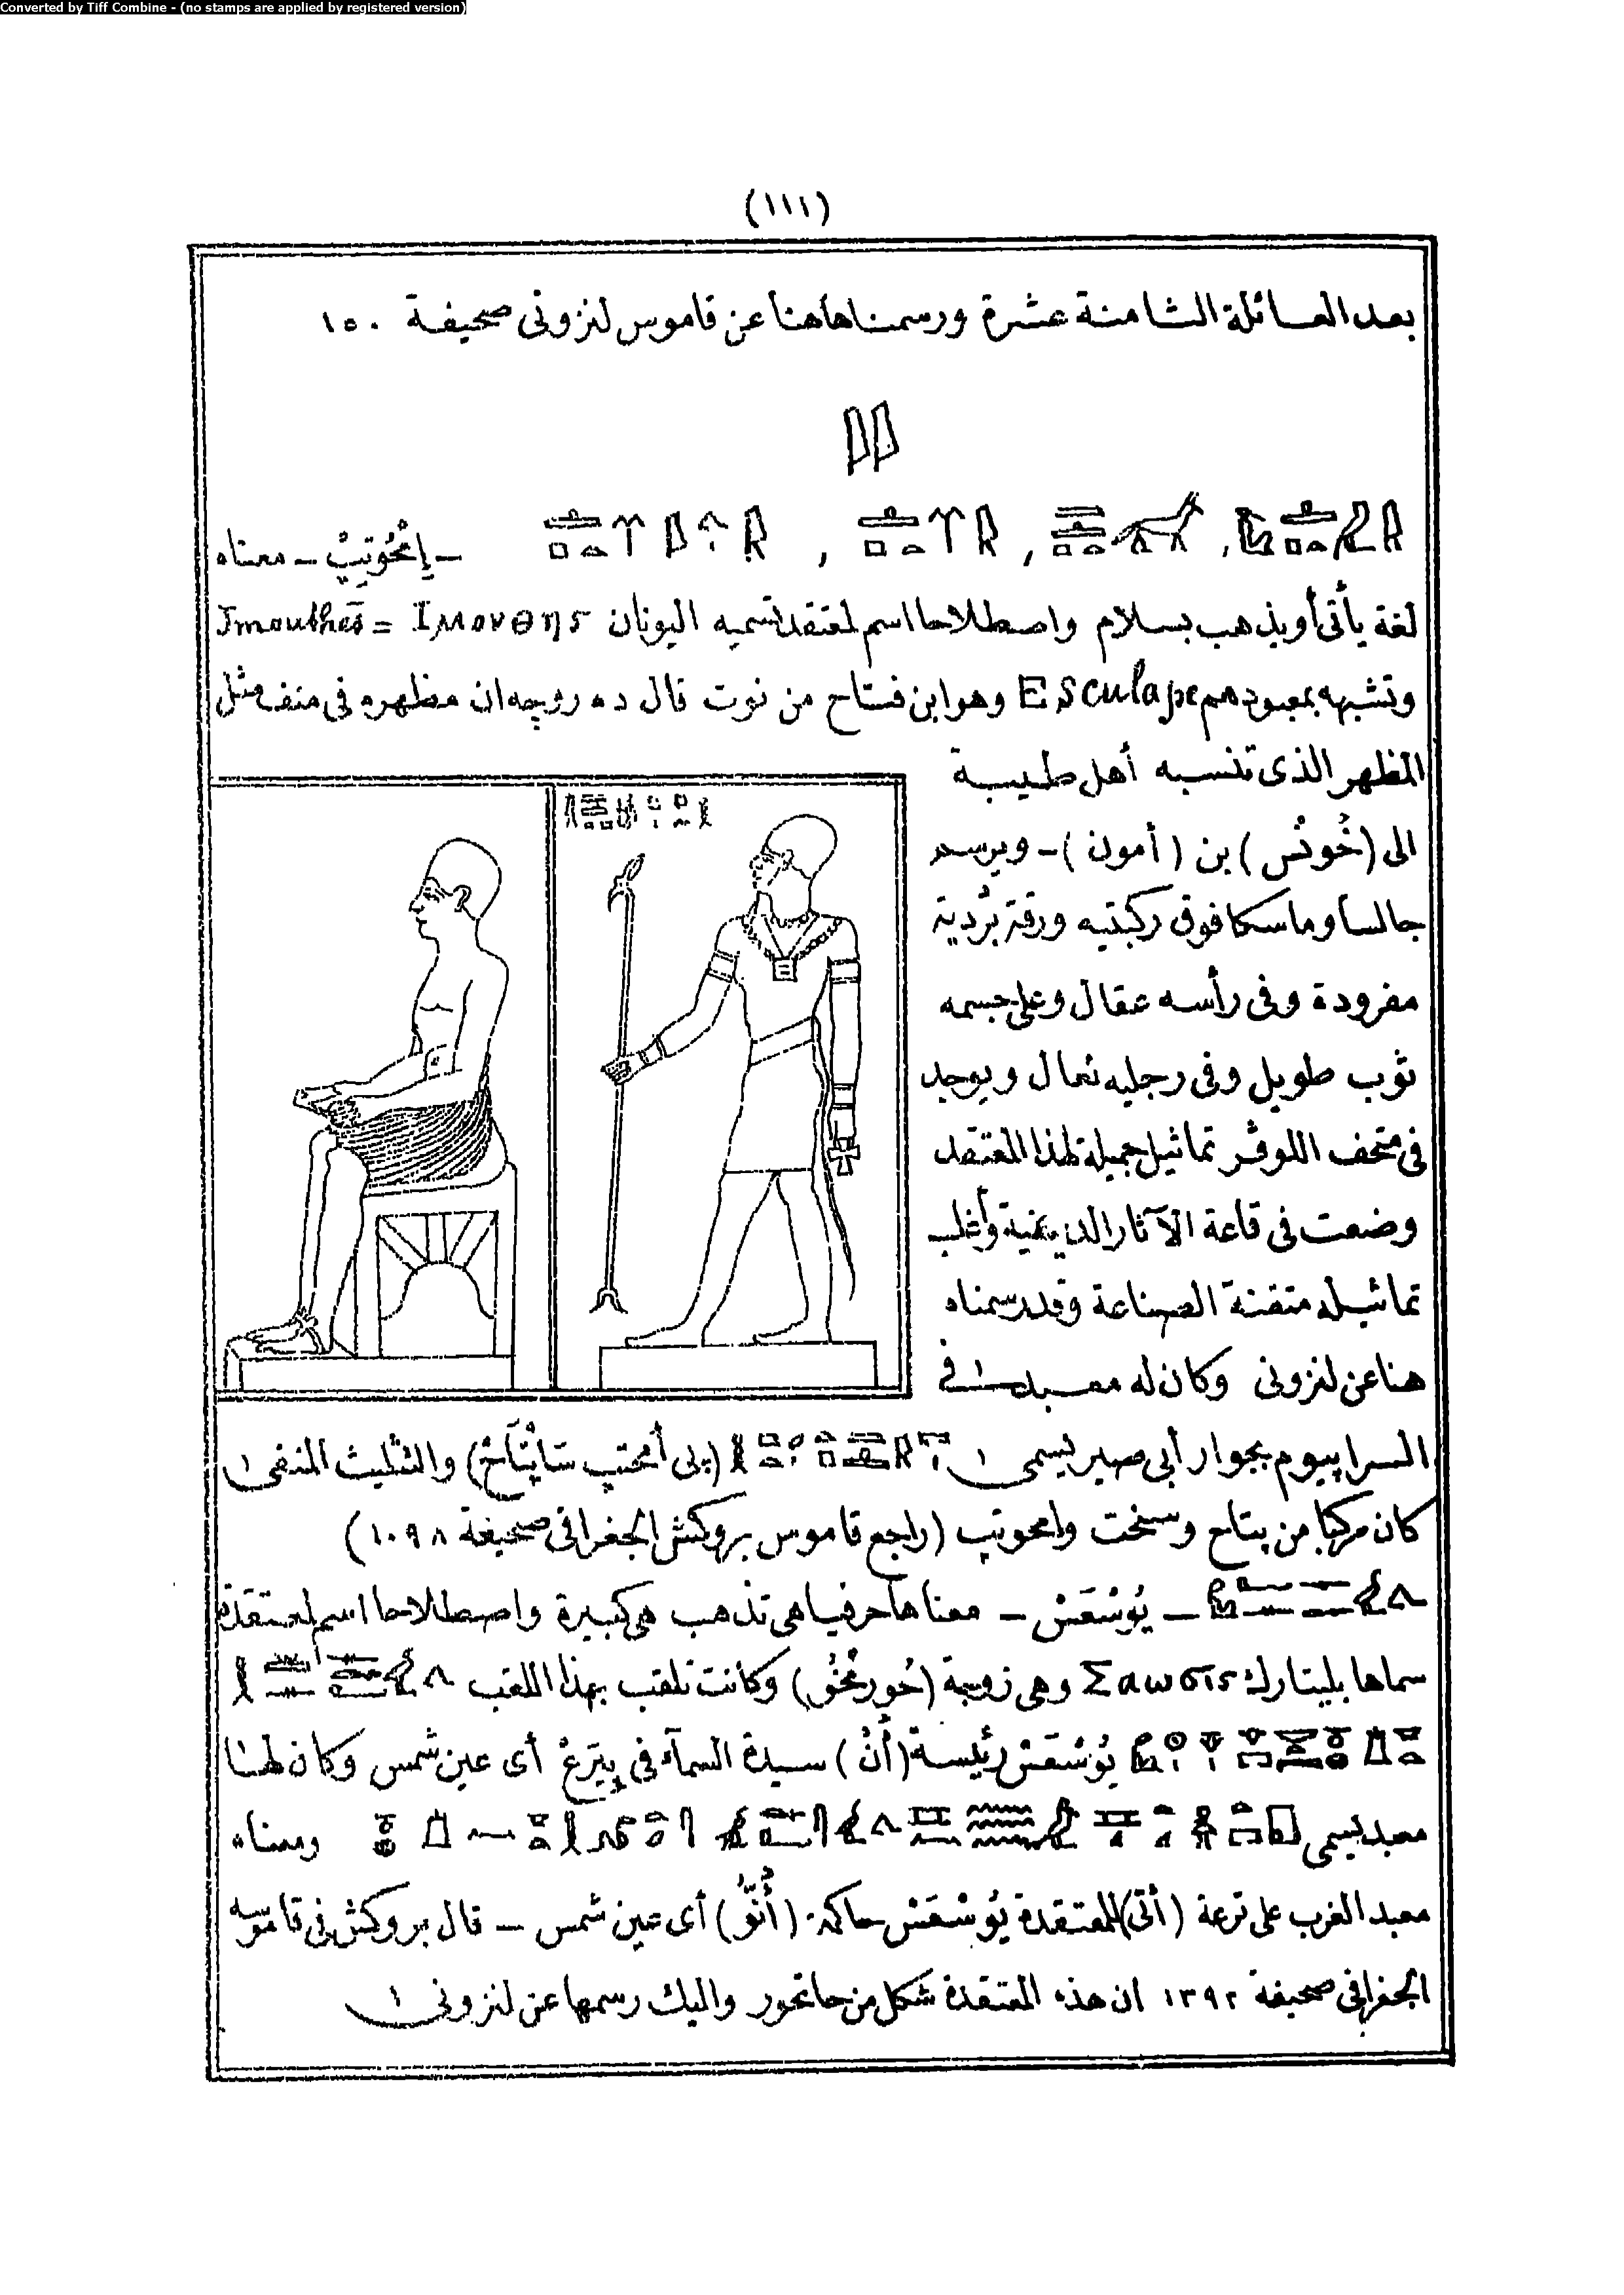 Converted by Tiff Combine - (no stamps are applied by registered version)
(١١١)
بعد العائلة الثامنة عشرة ورسمناها هنا عن قاموس لنزونى صحيفة ١٥٠
𓇋𓇋
– إمحُوتِبْ – معناه
لغة يأتى أو يذهب بسلام واصطلاحا اسم لمعتقد تسميه اليونان Imouthes = Iμουθης
وتشبهه بمعبودهم Esculape وهو ابن فتاح من نوت قال ده روجه ان مظهره فى منف مثل
المظهر الذى تنسبه أهل طيبة
الى (خُونْس) بن (أمون) – ويرسم
جالسا وماسكا فوق ركبتيه ورقة بردية
مفرودة وفى رأسه عقال وعلى جسمه
ثوب طويل وفى رجليه نعال ويوجد
فى متحف اللوڤر تماثيل جميلة لهذا المعتقد
وضعت فى قاعة الآثار الدينية وأغلب
تماثيله متقنة الصناعة وقد رسمناه
هنا عن لنزونى وكان له معبد فى
السرابيوم بجوار أبى صير يسمى (پى أمحتپ سَاپْتَاحْ) والثليث المنفى
كان مركبا من پتاح وسخت وامحوتپ (راجع قاموس بروكش الجغرافى صحيفة ١٠٩٨)
– يُوسْعَسْ – معناها حرفيا هى تذهب هى كبيرة واصطلاحا اسم لمعتقدة
سماها بليتارك Σαωσις وهى زوجة (حُورمْخُو) وكانت تلقب بهذا اللقب
يُوسْعَسْ رئيسة (أُنْ) سيدة السمآء فى پِيَرَعْ أى عين شمس وكان لها
معبد يسمى ومعناه
معبد الغرب على ترعة (أتى) للمعتقدة يُوسْعَسْ حاكمة (أُنُو) أى عين شمس – قال بروكش فى قاموسه
الجغرافى صحيفة ١٣٩٢ ان هذه المعتقدة شكل من حاتحور واليك رسمها عن لنزونى